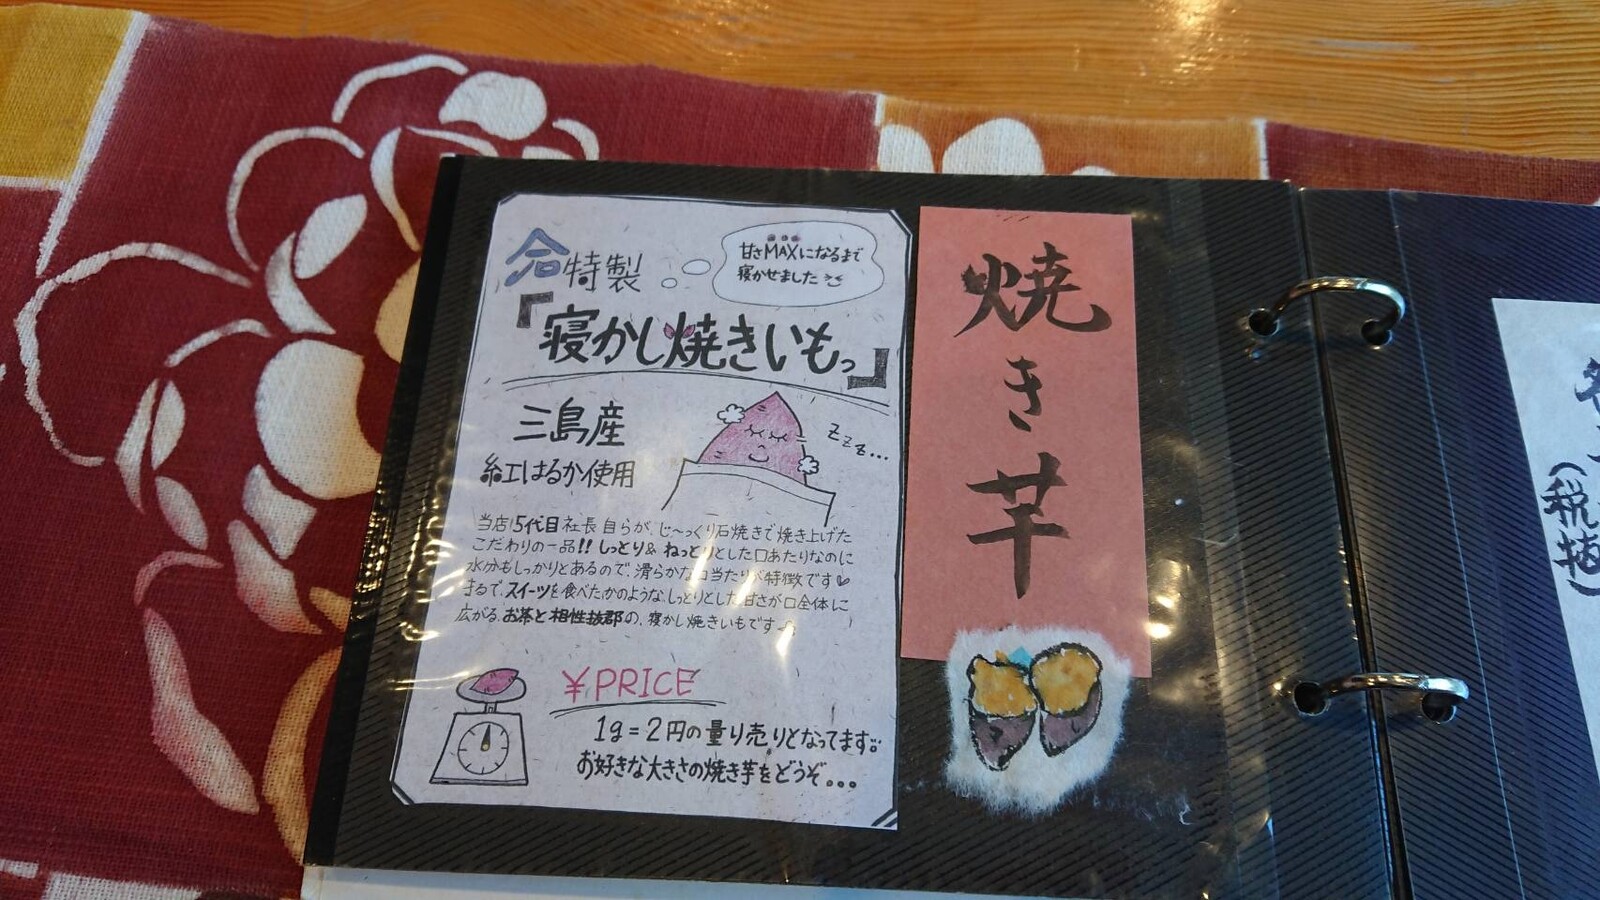 特製
甘さMAXになるまで
寝かせました
『寝かし焼きいもっ』
三島産
紅はるか使用
zzz...
当店15代目社長自らが、じ〜っくり石焼きで焼き上げた
こだわりの一品!! しっとり&ねっとりとした口あたりなのに
水分もしっかりとあるので、滑らかな口当たりが特徴です♡
まるで、スイーツを食べたかのような、しっとりとした甘さが口全体に
広がる、お茶と相性抜群の、寝かし焼きいもです
¥PRICE
1g=2円の量り売りとなってます。
お好きな大きさの焼き芋をどうぞ...
焼き芋
(税抜)